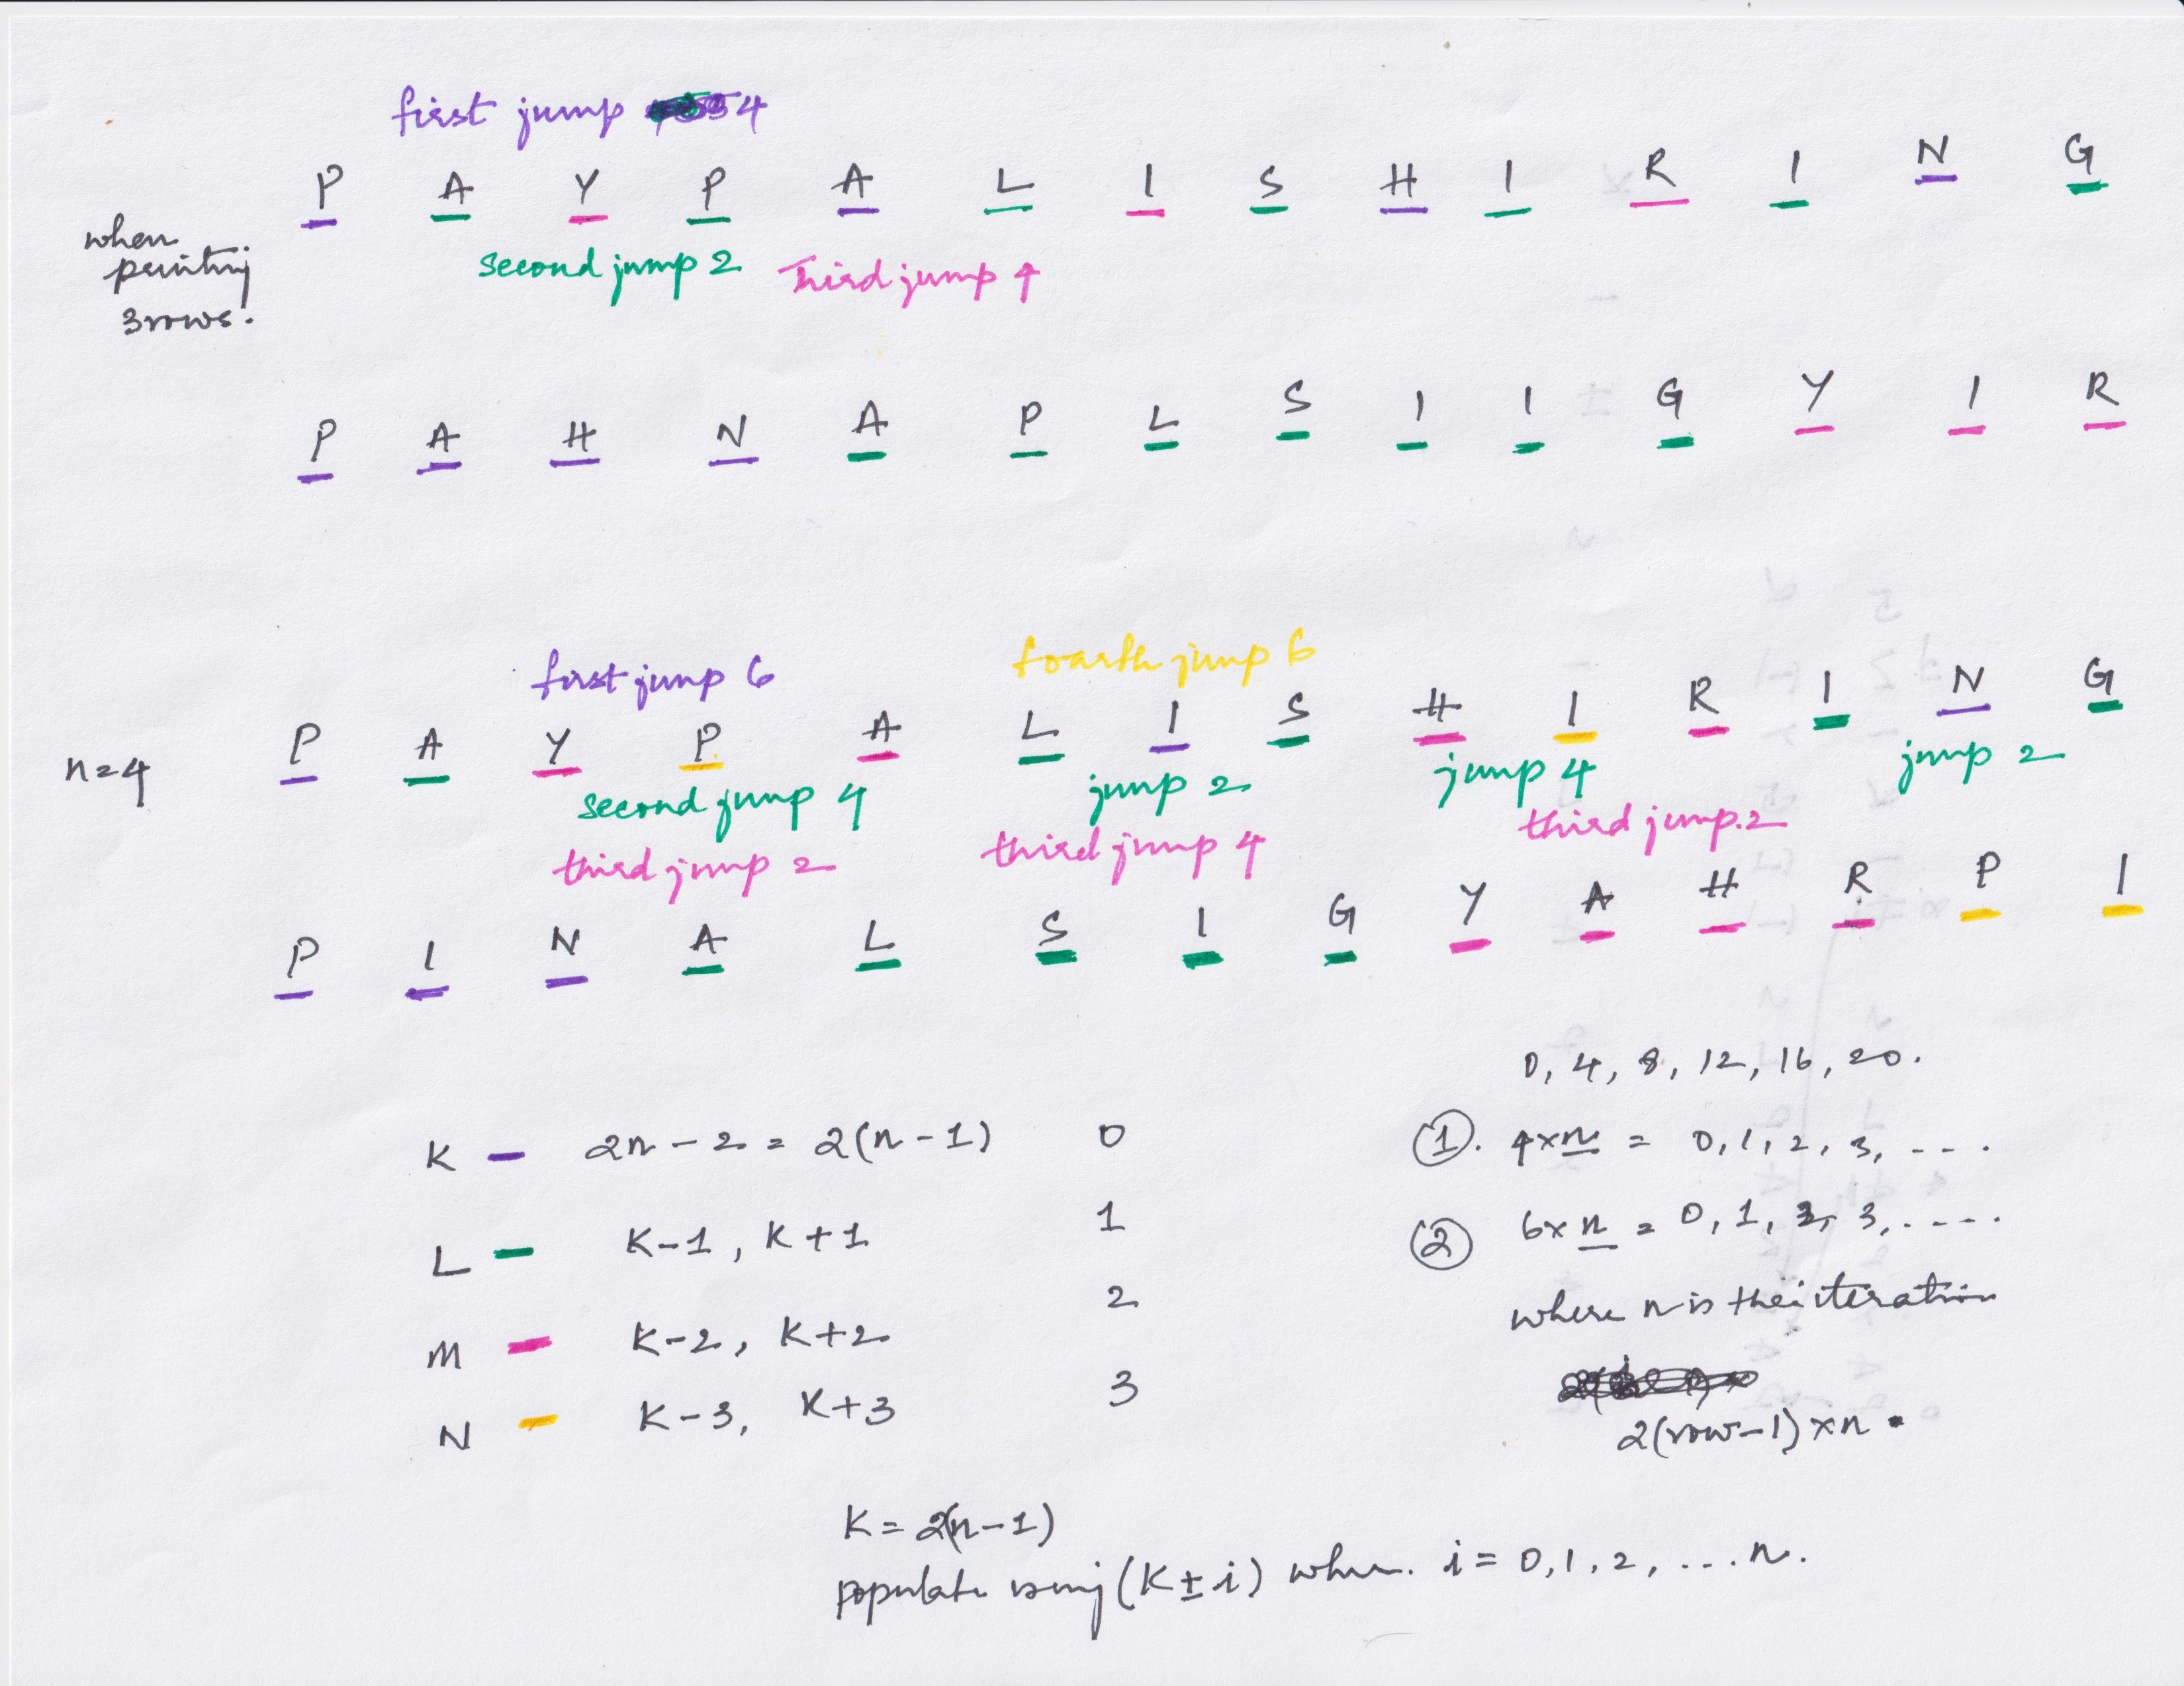 first jump 4
P A Y P A L I S H I R I N G
when
printing
3rows.
second jump 2 Third jump 4
P A H N A P L S I I G Y I R
first jump 6 fourth jump 6
n=4 P A Y P A L I S H I R I N G
second jump 4 jump 2 jump 4 jump 2
third jump 2 third jump 4 third jump.2
P I N A L S I G Y A H R P I
0, 4, 8, 12, 16, 20.
K - 2n - 2 = 2(n - 1) 0
①. 4×n = 0, 1, 2, 3, - - - .
L - K-1, K+1 1
② 6×n = 0, 1, 2, 3, . - - - .
M - K-2, K+2 2
where n is the iteration
N - K-3, K+3 3
2(row-1) ×n
K = 2(n-1)
populate using (K±i) when. i = 0, 1, 2, ... n.